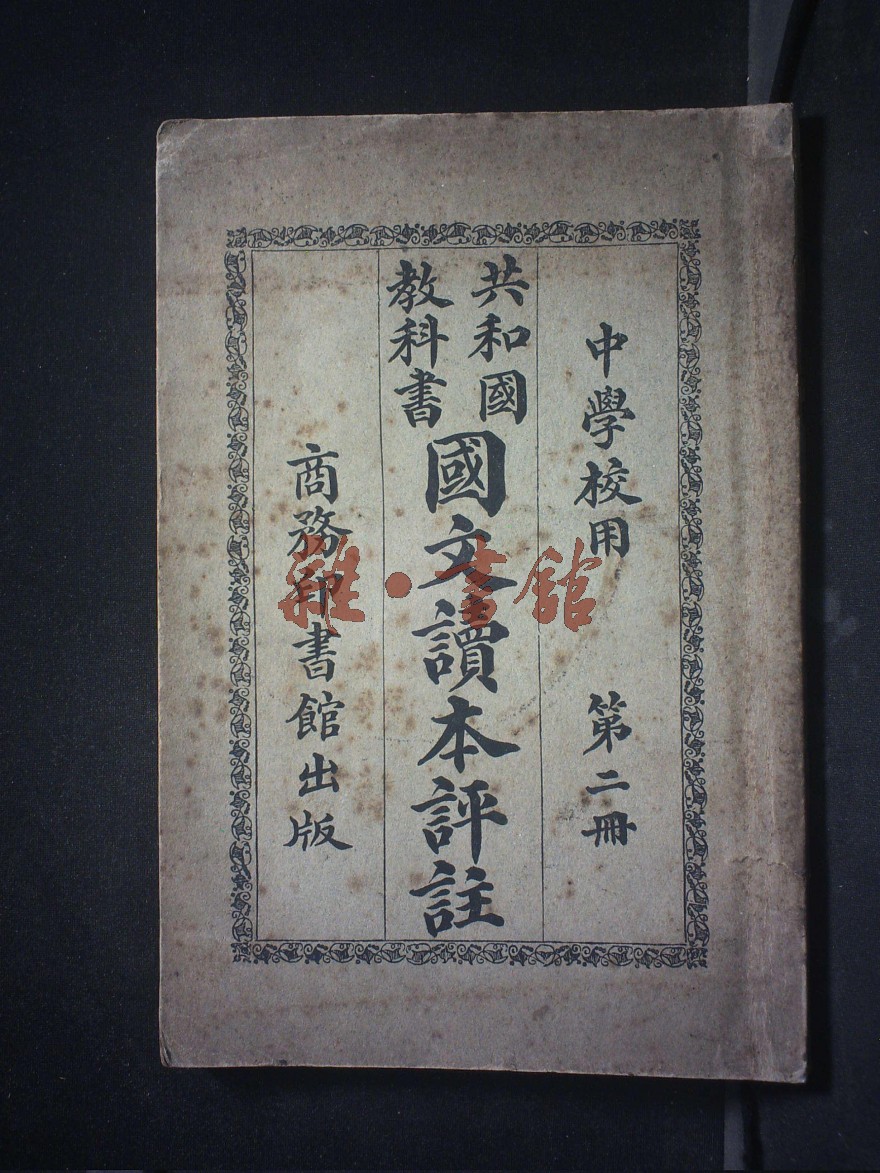 中學校用 第二冊
共和國
教科書
國文讀本評註
商務印書館出版
雜·書館